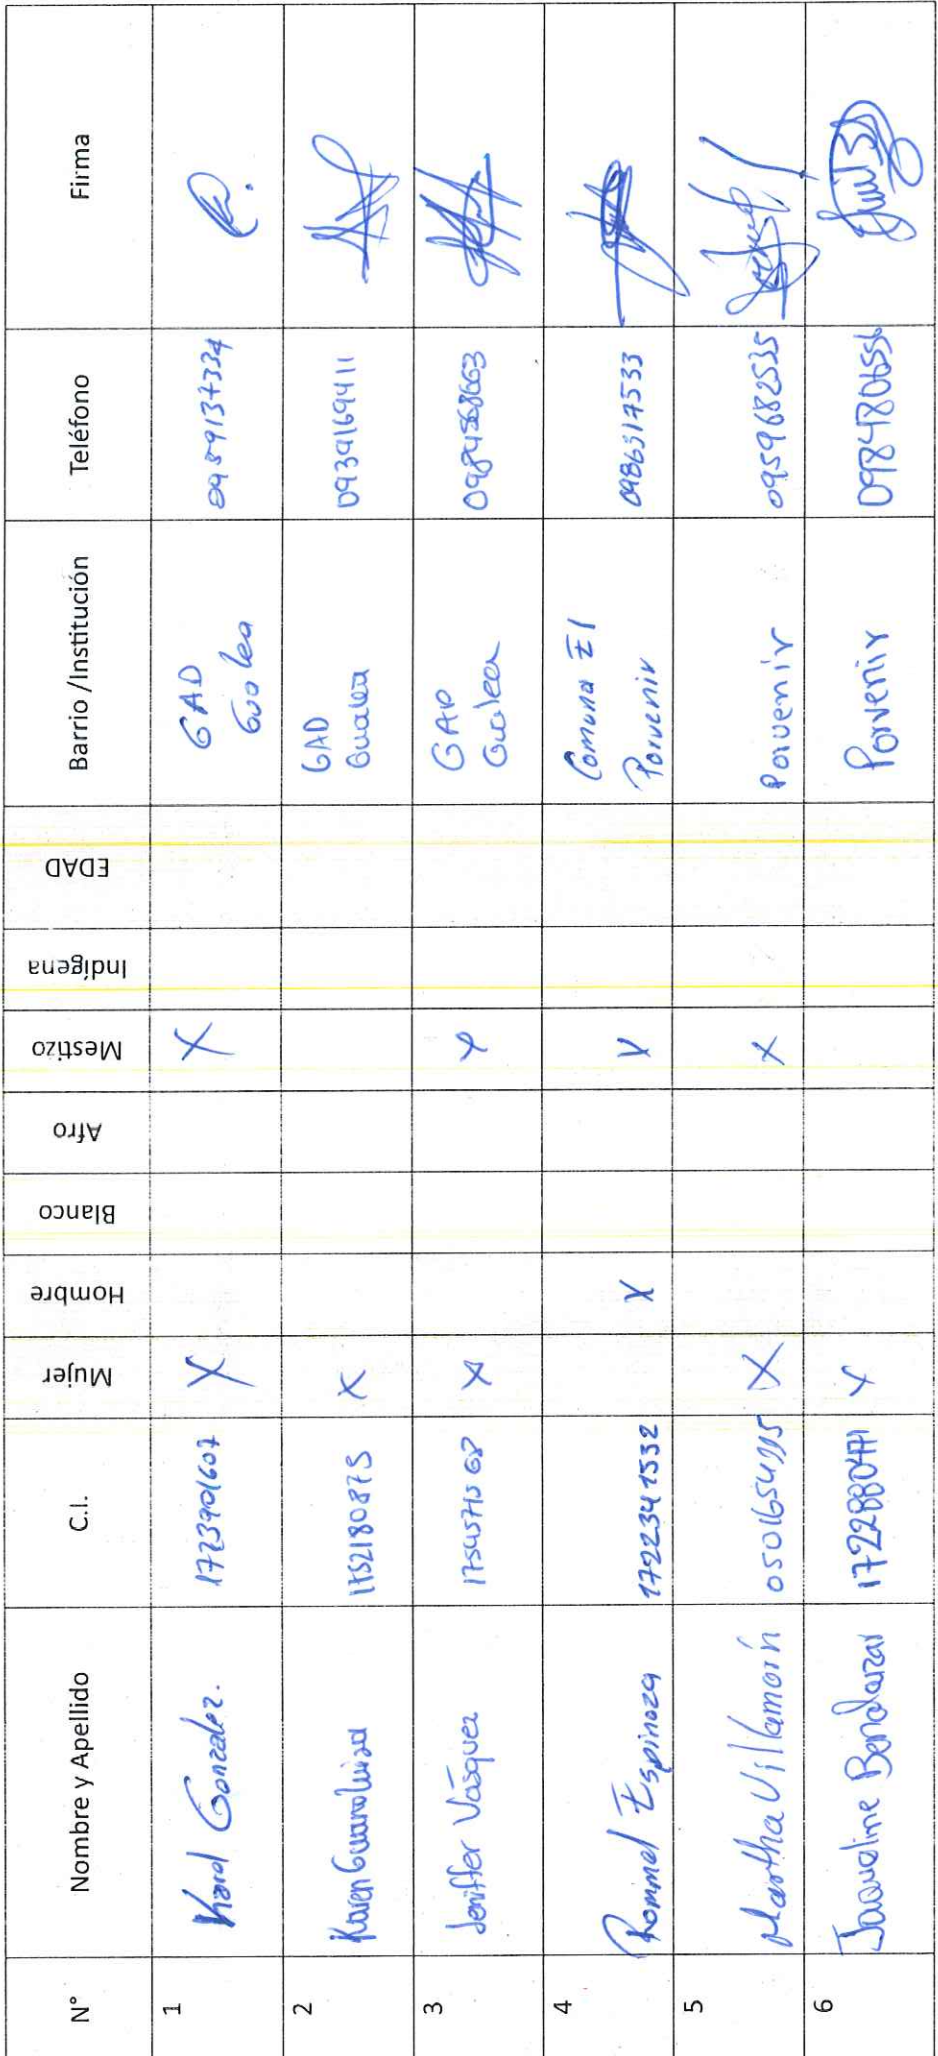 N° Nombre y Apellido C.I. Mujer Hombre Blanco Afro Mestizo Indígena EDAD Barrio /Institución Teléfono Firma
1 Karol Gonzalez. 1723901607 X X GAD Gualea 0959137334
2 Karen Guanoluisa 1752180875 X GAD Gualea 0939169411
3 Jeniffer Vásquez X X GAD Gualea
4 Rommel Espinoza 1722341532 X X Comuna El Porvenir 0986317533
5 Martha Villamarín X X Porvenir 0959682535
6 Jaqueline Benalcazar 1722880471 X Porvenir 0984780656